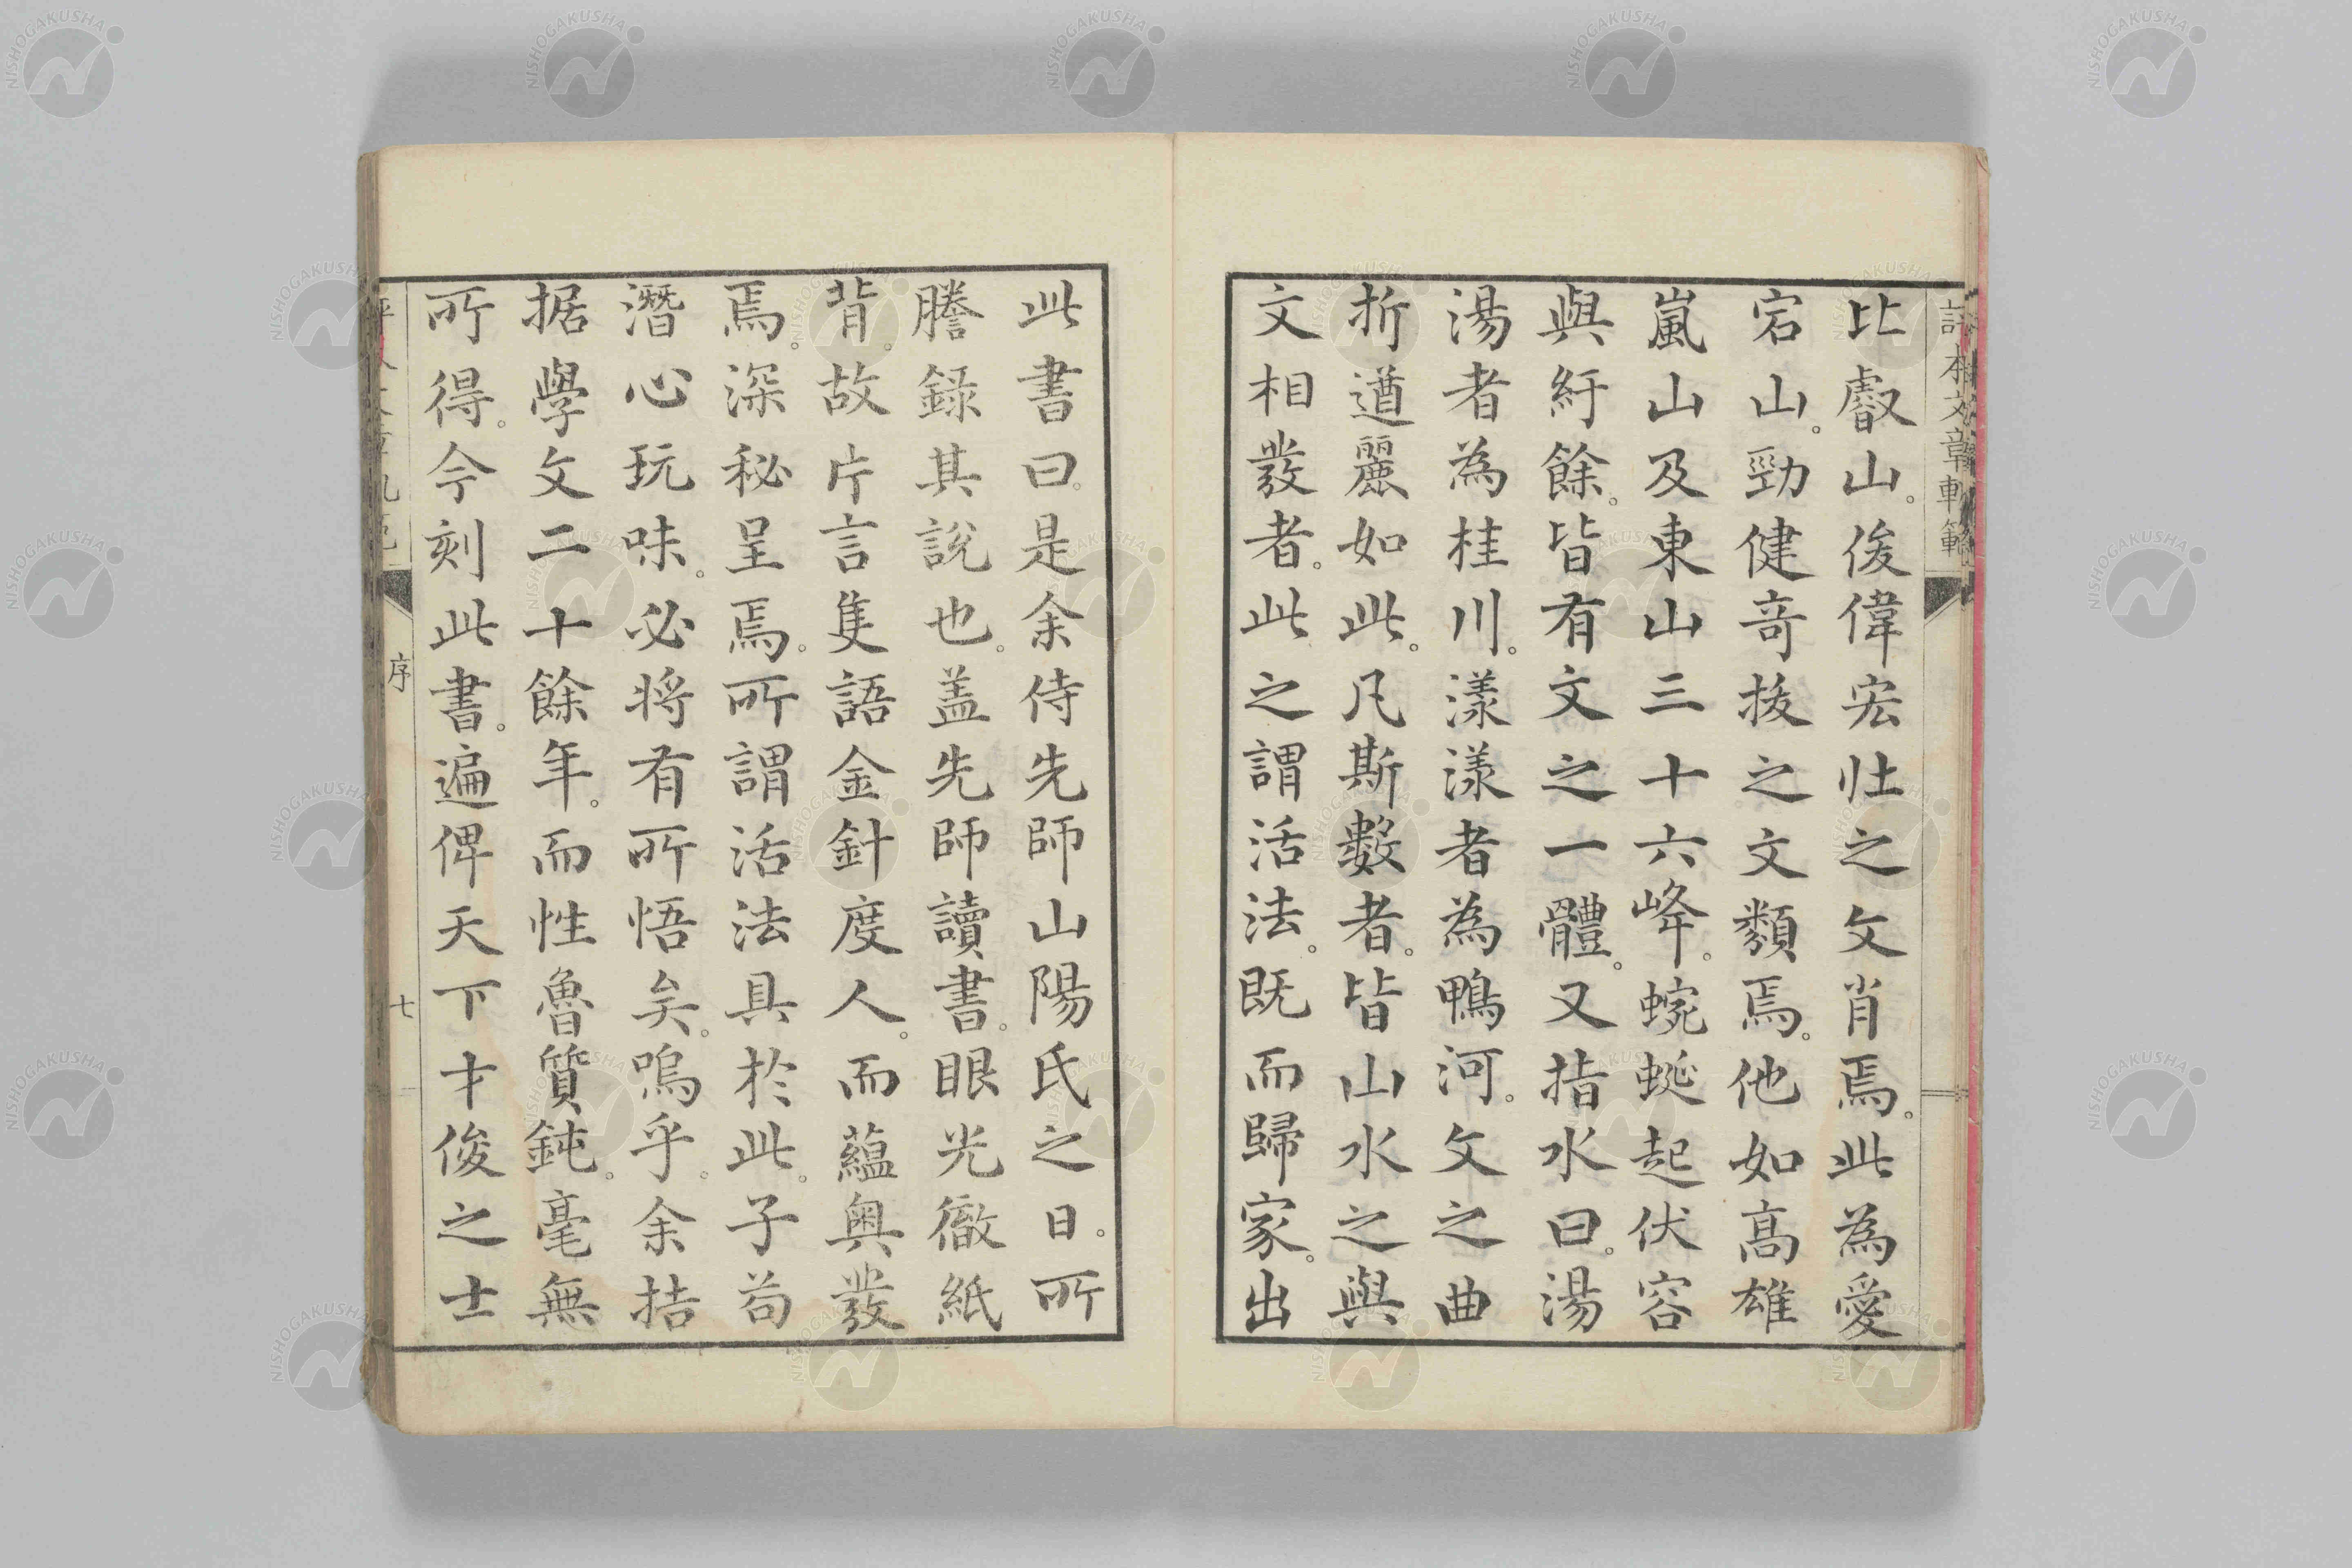 比叡山。俊偉宏壮之文肖焉。此為愛
宕山。勁健竒抜之文類焉。他如髙雄
嵐山及東山三十六峰。蜿蜒起伏容
與紆餘。皆有文之一體。又指水曰。湯
湯者為桂川。漾漾者為鴨河。文之曲
折遒麗如此。凡斯數者。皆山水之與
文相發者。此之謂活法。既而歸家。出
此書曰。是余侍先師山陽氏之日。所
謄録其説也。盖先師讀書。眼光徹紙
背。故片言隻語金針度人。而蘊奥發
焉。深秘呈焉。所謂活法具於此。子苟
潛心玩味。必将有所悟矣。嗚乎。余拮
据學文二十餘年。而性魯質鈍。毫無
所得。今刻此書。遍俾天下才俊之士
序
七
NISHOGAKUSHA